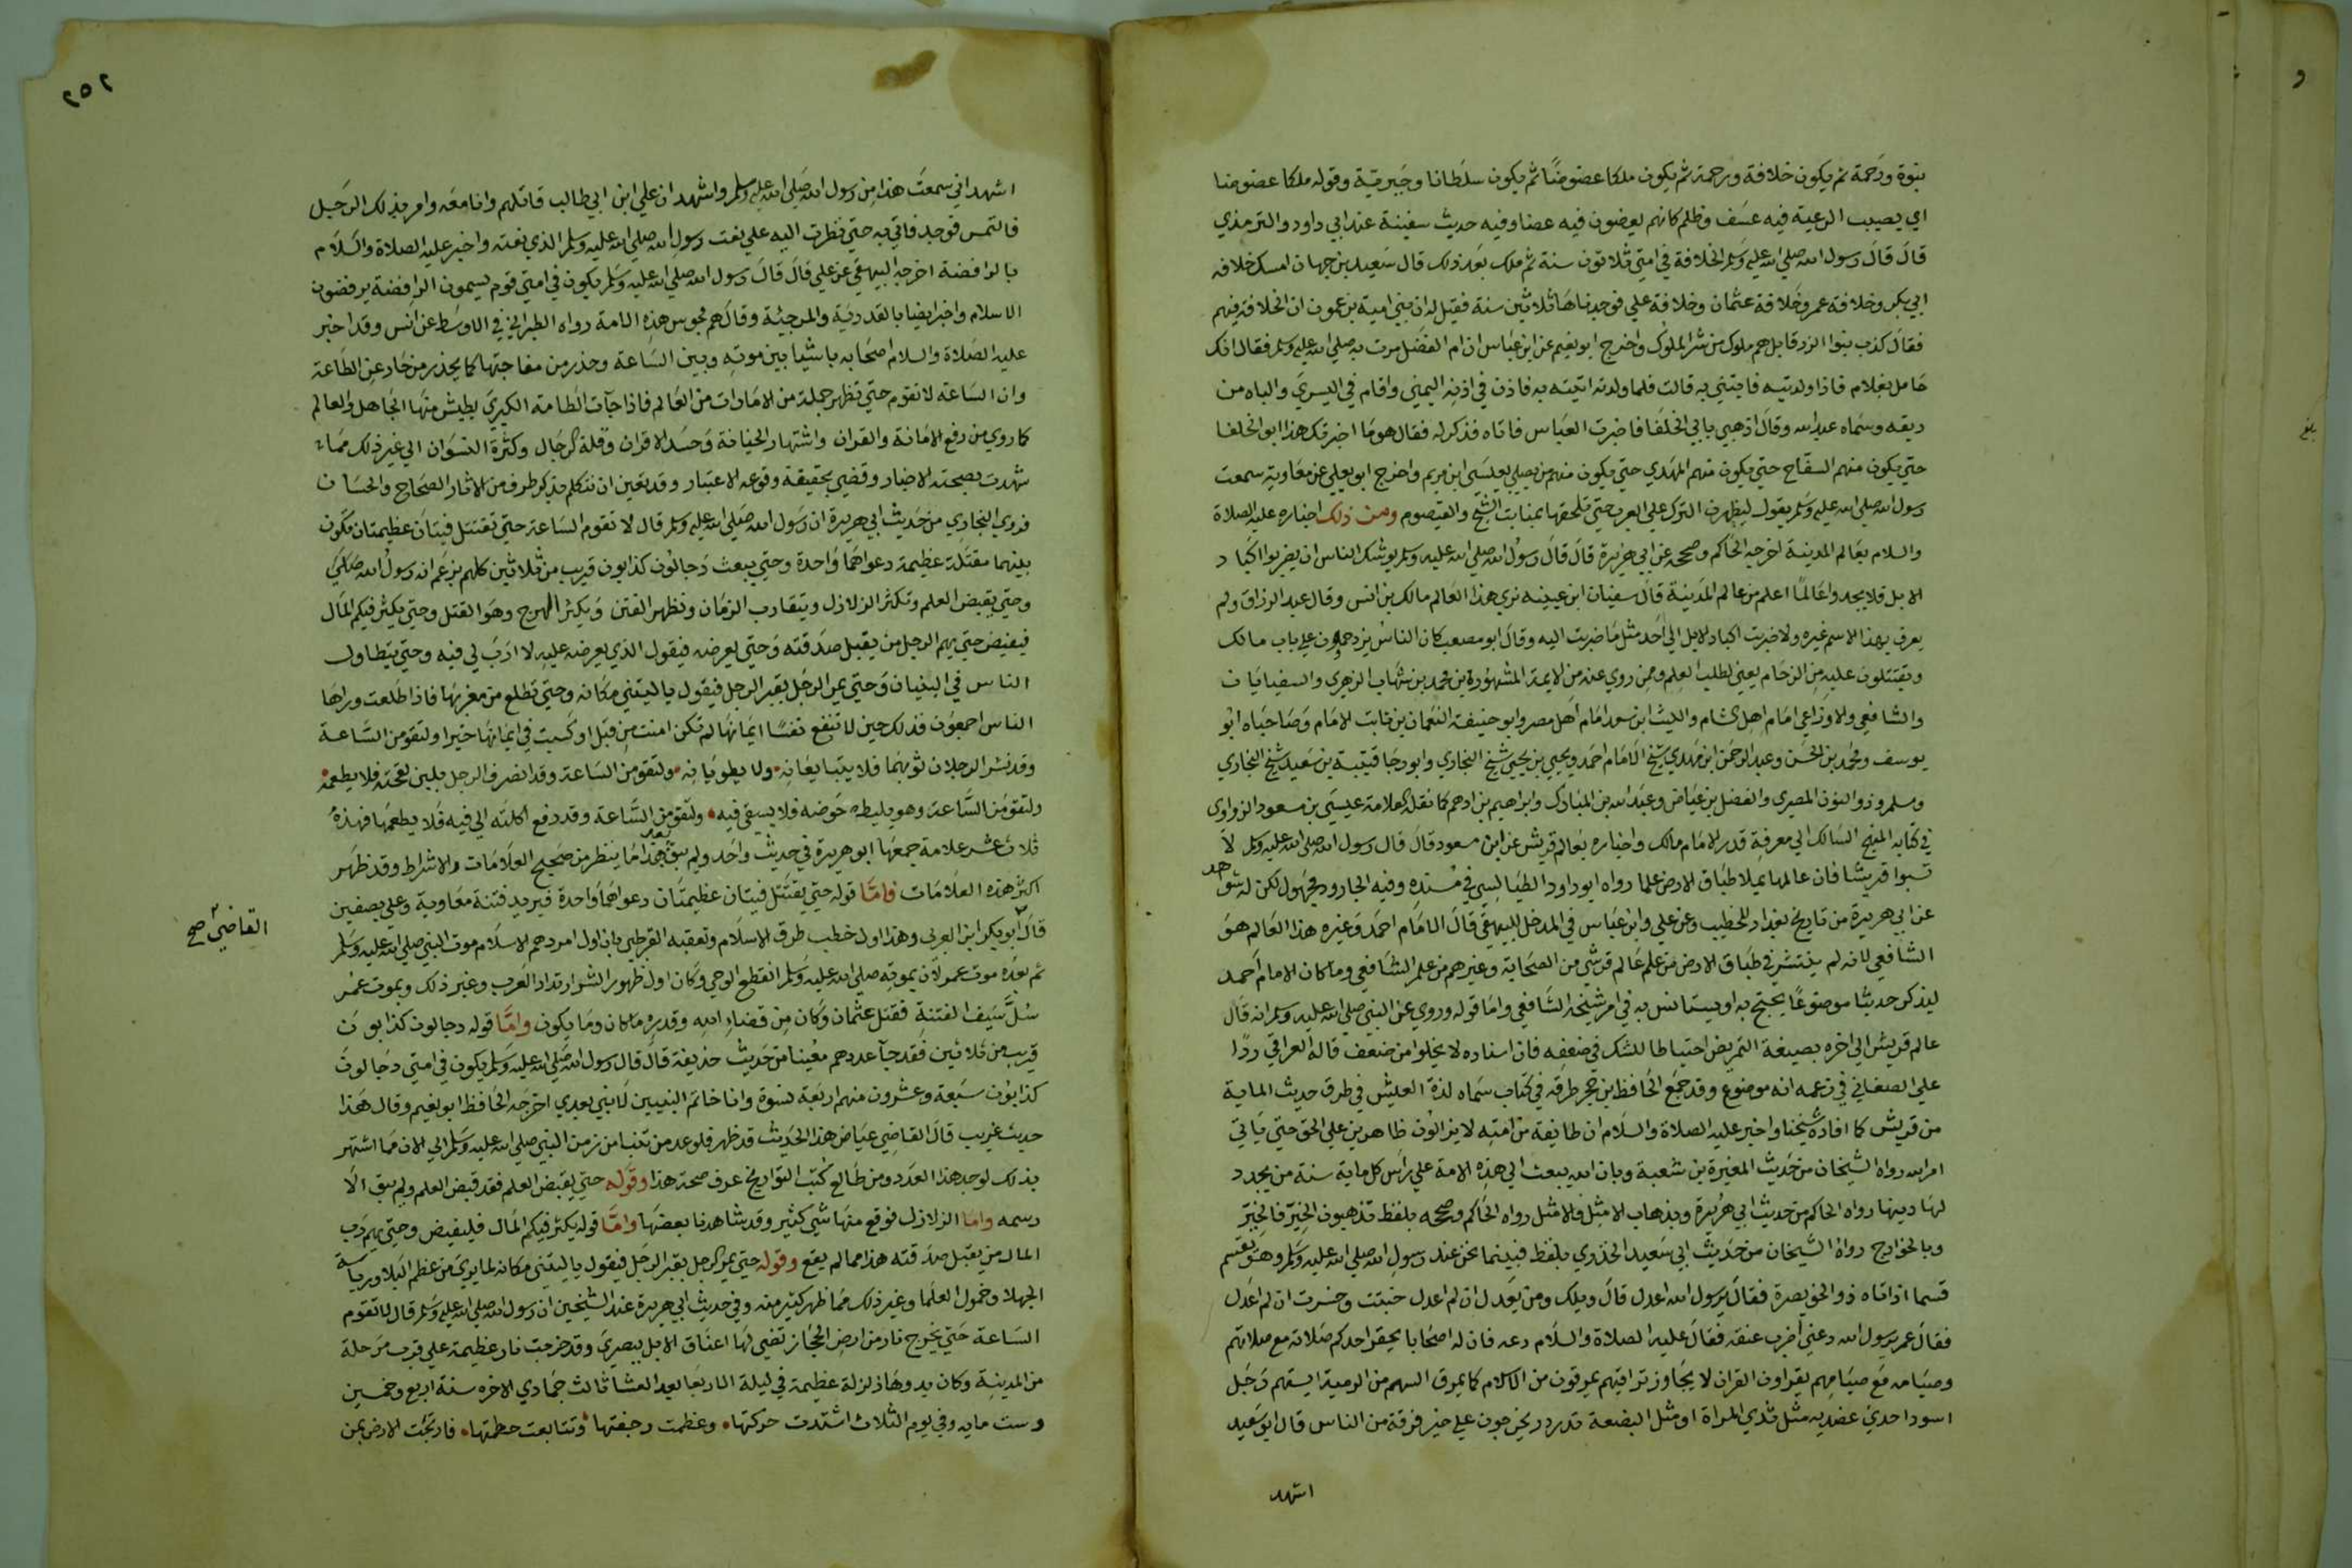 نبوة ورحمة ثم يكون خلافة ورحمة ثم يكون ملكا عضوضا ثم يكون سلطانا وجبرية وقوله ملكا عضوضا
اي يصيب الرعية فيه عسف وظلم كانهم يعضون فيه عضا وفيه حديث سفينة عند ابي داود والترمذي
قال قال رسول الله صلي الله عليه وسلم الخلافة في امتي ثلاثون سنة ثم ملك بعد ذلك قال سعيد بن جهان امسك خلافه
ابي بكر وخلافة عمر وخلافة عثمان وخلافة علي فوجدناها ثلاثين سنة فقيل له ان بني امية يزعمون ان الخلافة فيهم
فقال كذب بنوا الزرقا بل هم ملوك من شر الملوك واخرج ابو نعيم عن ابن عباس ان ام الفضل مرت به صلي الله عليه وسلم فقال انك
حامل بغلام فاذا ولدتيه فايتني به قالت فلما ولدته اتيته به فاذن في اذنه اليمني واقام في اليسري والباه من
ريقه وسماه عبدالله وقال اذهبي بابي الخلفا فاخبرت العباس فاتاه فذكر له فقال هو ما اخبرتك هذا ابو الخلفا
حتي يكون منهم السفاح حتي يكون منهم المهدي حتي يكون منهم من يصلي بعيسي ابن مريم واخرج ابو يعلي عن معاوية سمعت
رسول الله صلي الله عليه وسلم يقول ليظهرن الترك علي العرب حتي تلحقها بمنابت الشيح والقيصوم ومن ذلك اخباره عليه الصلاة
والسلام بعالم المدينة اخرجه الحاكم وصححه عن ابي هريرة قال قال رسول الله صلي الله عليه وسلم يوشك الناس ان يضربوا اكباد
الابل فلا يجدوا عالما اعلم من عالم المدينة قال سفيان ابن عيينه نري هذا العالم مالك بن انس وقال عبد الرزاق ولم
يعرف بهذا الاسم غيره ولا ضربت اكباد الابل الي احد مثل ما ضربت اليه وقال ابو مصعب كان الناس يزدحمون علي باب مالك
ويقتتلون عليه من الزحام يعني لطلب العلم وممن روي عنه من الايمة المشهورة بن محمد بن شهاب الزهري والسفيانان
والشافعي والاوزاعي امام اهل الشام والليث ابن سعد امام اهل مصر وابو حنيفة النعمان بن ثابت الامام وصاحباه ابو
يوسف ومحمد بن الحسن وعبد الرحمن ابن مهدي شيخ الامام احمد ويحيي بن يحيي شيخ البخاري وابو رجا قتيبة بن سعيد شيخ البخاري
ومسلم وذو النون المصري والفضل بن عياض وعبد الله بن المبارك وابراهيم بن ادهم كما نقله العلامة عيسي بن مسعود الزواوي
في كتابه المنهج السالك الي معرفة قدر الامام مالك واخباره بعالم قريش عن ابن مسعود قال قال رسول الله صلي الله عليه وسلم لا
تسبوا قريشا فان عالمها يملا طباق الارض علما رواه ابو داود الطيالسي في مسنده وفيه الجارود مجهول لكن له شواهد
عن ابي هريرة من تاريخ بغداد للخطيب وعن علي وابن عباس في المدخل للبيهقي قال الامام احمد وغيره هذا العالم هو
الشافعي لانه لم ينتشر في طباق الارض من علم عالم قرشي من الصحابة وغيرهم من علم الشافعي وما كان الامام احمد
ليذكر حديثا موضوعا يحتج به او يستانس به في امر شيخه الشافعي واما قوله وروي عن النبي صلي الله عليه وسلم انه قال
عالم قريش الي اخره بصيغة التمريض احتياطا للشك في ضعفه فان اسناده لا يخلوا من ضعف قاله العراقي ردا
علي الصغاني في زعمه انه موضوع وقد جمع الحافظ بن حجر طرقه في كتاب سماه لذة العيش في طرق حديث الايمة
من قريش كما افاده شيخنا واخبر عليه الصلاة والسلام ان طائفة من امته لا يزالون ظاهرين علي الحق حتي ياتي
امر الله رواه الشيخان من حديث المغيرة بن شعبة وبان الله يبعث الي هذه الامة علي راس كل ماية سنة من يجدد
لها دينها رواه الحاكم من حديث ابي هريرة وبذهاب الامثل فالامثل رواه الحاكم وصححه بلفظ تذهبون الخير فالخير
وبالخوارج رواه الشيخان من حديث ابي سعيد الخذري بلفظ فبينما نحن عند رسول الله صلي الله عليه وسلم وهو يقسم
قسما اذ اتاه ذو الخويصرة فقال يرسول الله اعدل قال ويلك ومن يعدل ان لم اعدل خبت وخسرت ان لم اعدل
فقال عمر يرسول الله دعني اضرب عنقه فقال عليه الصلاة والسلام دعه فان له اصحابا يحقر احدكم صلاته مع صلاتهم
وصيامه مع صيامهم يقراون القران لا يجاوز تراقيهم يمرقون من الاسلام كما يمرق السهم من الرمية ايستهم رجل
اسود احدي عضديه مثل ثدي المراة او مثل البضعة تدردر يخرجون علي خير فرقة من الناس قال ابو سعيد
اشهد
٢٥٢
اشهد اني سمعت هذا من رسول الله صلي الله عليه وسلم واشهد ان علي ابن ابي طالب قاتلهم وانا معه وامر بذلك الرجل
فالتمس فوجد فاتي به حتي نظرت اليه علي نعت رسول الله صلي الله عليه وسلم الذي نعته واخبر عليه الصلاة والسلام
بالرافضة اخرجه البيهقي عن علي قال قال رسول الله صلي الله عليه وسلم يكون في امتي قوم يسمون الرافضة يرفضون
الاسلام واخبر ايضا بالقدرية والمرجئة وقال هم مجوس هذه الامة رواه الطبراني في الاوسط عن انس وقد اخبر
عليه الصلاة والسلام اصحابه باشيا بين موته وبين الساعة وحذر من مفاجتها كما يحذر من حاد عن الطاعة
وان الساعة لا تقوم حتي تظهر جملة من الامارات من العالم فاذا جآت الطامة الكبري يطيش منها الجاهل والعالم
كما روي من رفع الامانة والقران واشتهار الخيانة وحسد الاقران وقلة الرجال وكثرة النسوان الي غير ذلك مما
شهدت بصحته الاخبار وقضي بحقيقة وقوعه الاعتبار وقد يتعين ان نتكلم بذكر طرف من الاثار الصحاح والحسان
فروي البخاري من حديث ابي هريرة ان رسول الله صلي الله عليه وسلم قال لا تقوم الساعة حتي تقتتل فيتان عظيمتان تكون
بينهما مقتلة عظيمة دعواهما واحدة وحتي يبعث دجالون كذابون قريب من ثلاثين كلهم يزعم انه رسول الله
وحتي يقبض العلم وتكثر الزلازل ويتقارب الزمان وتظهر الفتن ويكثر الهرج وهو القتل وحتي يكثر فيكم المال
فيفيض حتي يهم الرجل من يقبل صدقته وحتي يعرضه فيقول الذي يعرضه عليه لا ارب لي فيه وحتي يتطاول
الناس في البنيان وحتي يمر الرجل بقبر الرجل فيقول يا ليتني مكانه وحتي تطلع من مغربها فاذا طلعت وراها
الناس اجمعون فذلك حين لا تنفع نفسا ايمانها لم تكن امنت من قبل او كسبت في ايمانها خيرا ولتقومن الساعة
وقد نشر الرجلان ثوبهما فلا يتبايعانه ولا يطويانه ولتقومن الساعة وقد انصرف الرجل بلبن لقحته فلا يطعمه
ولتقومن الساعة وهو يليط حوضه فلا يسقي فيه ولتقومن الساعة وقد رفع اكلته الي فيه فلا يطعمها فهذه
ثلاث عشر علامة جمعها ابو هريرة في حديث واحد ولم يبق بعد هذا ما ينتظر من صحيح العلامات والاشراط وقد ظهر
اكثر هذه العلامات فاما قوله حتي يقتتل فيتان عظيمتان دعواهما واحدة فيريد فتنة معاوية وعلي بصفين
قال ابو بكر ابن العربي وهذا اول خطب طرق الاسلام وتعقبه القرطبي بان اول امر دهم الاسلام موت النبي صلي الله عليه وسلم
القاضي صح
ثم بعده موت عمر لان بموته صلي الله عليه وسلم انقطع الوحي وكان اول ظهور الشر ارتداد العرب وغير ذلك وبموت عمر
سل سيف الفتنة فقتل عثمان وكان من قضاء الله وقدره ما كان وما يكون واما قوله دجالون كذابون
قريب من ثلاثين فقد جآ عددهم معينا من حديث حذيفة قال قال رسول الله صلي الله عليه وسلم يكون في امتي دجالون
كذابون سبعة وعشرون منهم اربعة نسوة وانا خاتم النبيين لا نبي بعدي اخرجه الحافظ ابو نعيم وقال هذا
حديث غريب قال القاضي عياض هذا الحديث قد ظهر فلو عد من تنبا من زمن النبي صلي الله عليه وسلم الي الان مما اشتهر
بذلك لوجد هذا العدد ومن طالع كتب التواريخ عرف صحة هذا وقوله حتي يقبض العلم فقد قبض العلم ولم يبق الا
رسمه واما الزلازل فوقع منها شي كثير وقد شاهدنا بعضها واما قوله يكثر فيكم المال فليفيض وحتي يهم رب
المال من يقبل صدقته هذا مما لم يقع وقوله حتي يمر الرجل بقبر الرجل فيقول يا ليتني مكانه لما يري من عظم البلا ورياسة
الجهلا وخمول العلما وغير ذلك مما ظهر كثير منه وفي حديث ابي هريرة عند الشيخين ان رسول الله صلي الله عليه وسلم قال لا تقوم
الساعة حتي يخرج نار من ارض الحجاز تضي لها اعناق الابل ببصري وقد خرجت نار عظيمة علي قرب مرحلة
من المدينة وكان بدوها زلزلة عظيمة في ليلة الاربعا بعد العشا ثالث جمادي الاخره سنة اربع وخمسين
وست مايه وفي يوم الثلاث اشتدت حركتها وعظمت رجفتها وتتابعت حطمتها فارتجت الارض بمن